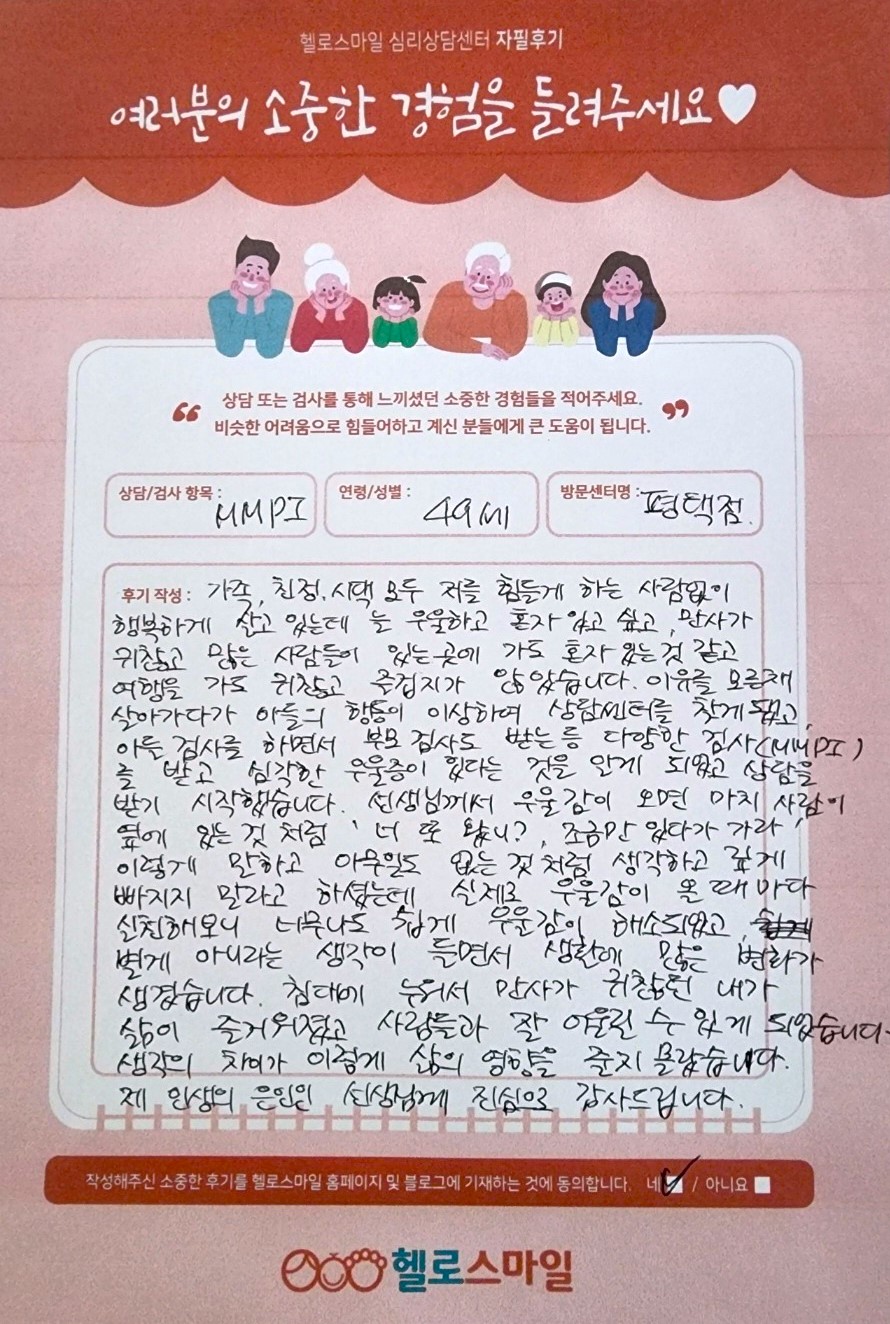 헬로스마일 심리상담센터 자필후기
여러분의 소중한 경험을 들려주세요
상담 또는 검사를 통해 느끼셨던 소중한 경험들을 적어주세요.
비슷한 어려움으로 힘들어하고 계신 분들에게 큰 도움이 됩니다.
상담/검사 항목 : MMPI
연령/성별 : 49세
방문센터명 : 평택점.
후기 작성 : 가족, 친정, 시댁 모두 저를 힘들게 하는 사람없이
행복하게 살고 있는데 늘 우울하고 혼자 있고 싶고, 만사가
귀찮고 많은 사람들이 있는 곳에 가도 혼자 있는것 같고
여행을 가도 귀찮고 즐겁지가 않았습니다. 이유를 모른채
살아가다가 아들의 행동이 이상하여 상담센터를 찾게 됐고,
아들 검사를 하면서 부모 검사도 받는 등 다양한 검사(MMPI)
를 받고 심각한 우울증이 있다는 것을 알게 되었고 상담을
받기 시작했습니다. 선생님께서 우울감이 오면 마치 사람이
옆에 있는 것 처럼 '너 또 왔니?, 조금만 있다가 가라'
이렇게 말하고 아무일도 없는 것 처럼 생각하고 깊게
빠지지 말라고 하셨는데 실제로 우울감이 올 때 마다
실천해보니 너무나도 쉽게 우울감이 해소되었고,
별게 아니라는 생각이 들면서 생활에 많은 변화가
생겼습니다. 침대에 누워서 만사가 귀찮던 내가
삶이 즐거워졌고 사람들과 잘 어울릴 수 있게 되었습니다.
생각의 차이가 이렇게 삶의 영향을 줄지 몰랐습니다.
제 인생의 은인인 선생님께 진심으로 감사드립니다.
작성해주신 소중한 후기를 헬로스마일 홈페이지 및 블로그에 기재하는 것에 동의합니다. 네 / 아니요
헬로스마일